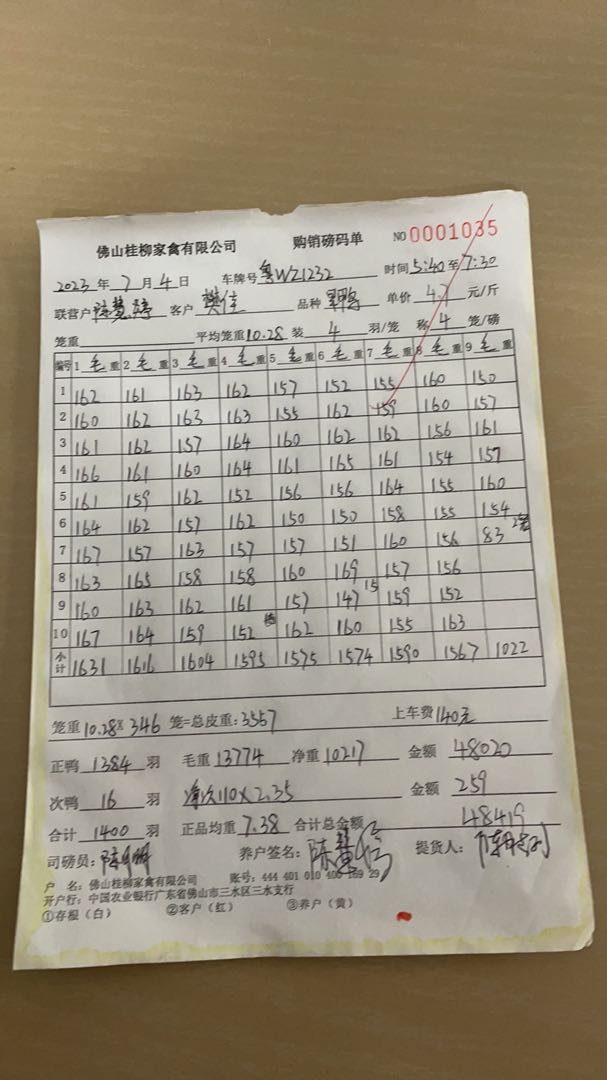 佛山桂柳家禽有限公司 购销磅码单 NO 0001035
2023 年 7 月 4 日 车牌号 粤WZ1232 时间 5:40 至 7:30
联营户 陈慧婷 客户 樊佳 品种 单价 4.7 元/斤
笼重 平均笼重 10.28 装 4 羽/笼 称 4 笼/磅
编号 1 毛重 2 毛重 3 毛重 4 毛重 5 毛重 6 毛重 7 毛重 8 毛重 9 毛重
1 162 161 163 162 157 152 155 160 150
2 160 162 163 163 155 162 159 160 157
3 161 162 157 164 160 162 162 156 161
4 166 161 160 164 161 165 161 154 157
5 161 159 162 152 156 156 164 155 160
6 164 162 157 162 150 150 158 155 154
7 167 157 163 157 157 151 160 156 83 2笼
8 163 165 158 158 160 169 157 156
9 160 163 162 161 157 147 15 159 152
10 167 164 159 152 162 160 155 163
小计 1631 1616 1604 1595 1575 1574 1590 1567 1022
笼重 10.28 X 346 笼=总皮重: 3557 上车费 140元
正鸭 1384 羽 毛重 13774 净重 10217 金额 48020
次鸭 16 羽 净次110 X 2.35 金额 259
合计 1400 羽 正品均重 7.38 合计总金额 48419
司磅员: 养户签名: 提货人:
户 名: 佛山桂柳家禽有限公司 账号: 444 401 010 400 169 29
开户行: 中国农业银行广东省佛山市三水区三水支行
①存根（白） ②客户（红） ③养户（黄）